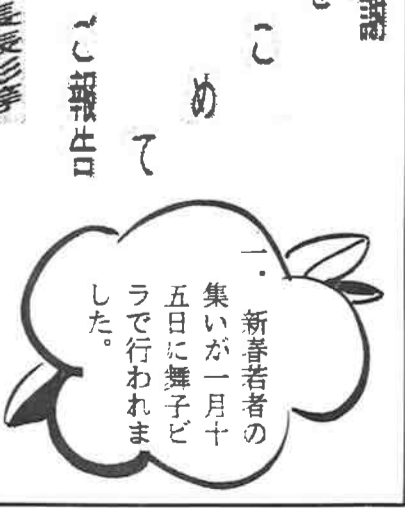 こ
め
て
ご報告
一．新春若者の
集いが一月十
五日に舞子ビ
ラで行われま
した。